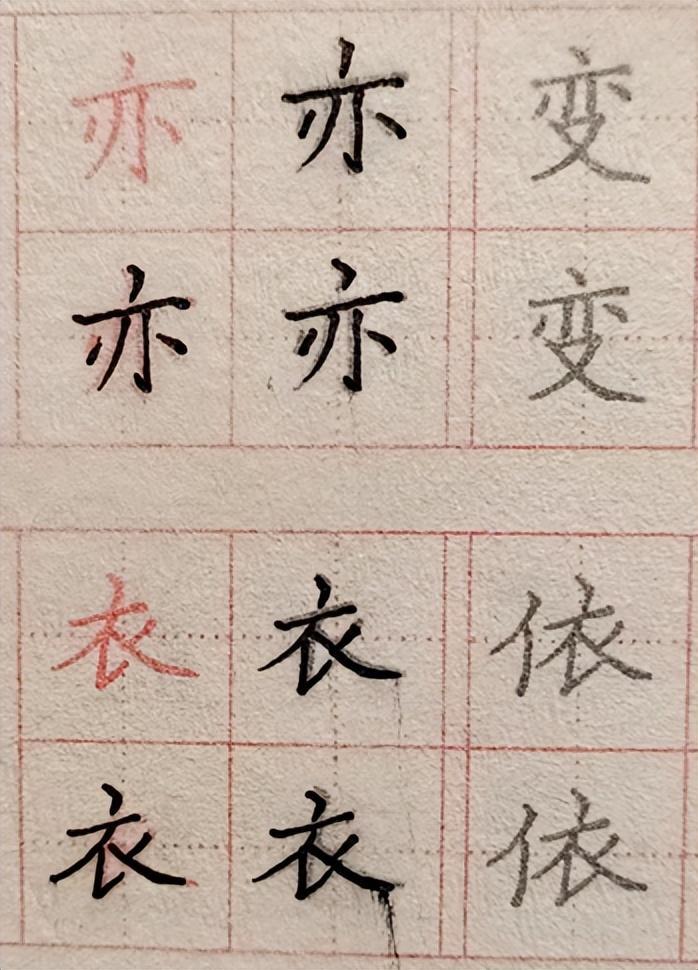 亦 亦 变
亦 亦 变
衣 衣 依
衣 衣 依